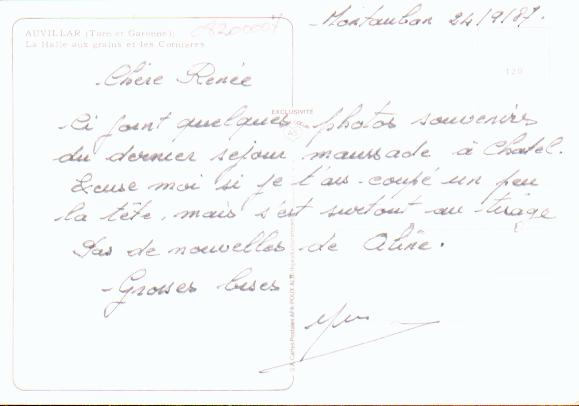 Montauban 24/9/87.
AUVILLAR (Tarn et Garonne);
La Halle aux grains et les Cornières
Chère Renée
EXCLUSIVITÉ
Ci joint quelques photos souvenirs
du dernier séjour maussade à Chatel.
Excuse moi si je t'ai coupé un peu
la tête, mais s'est surtout au tirage
Pas de nouvelles de Aline.
Grosses bises